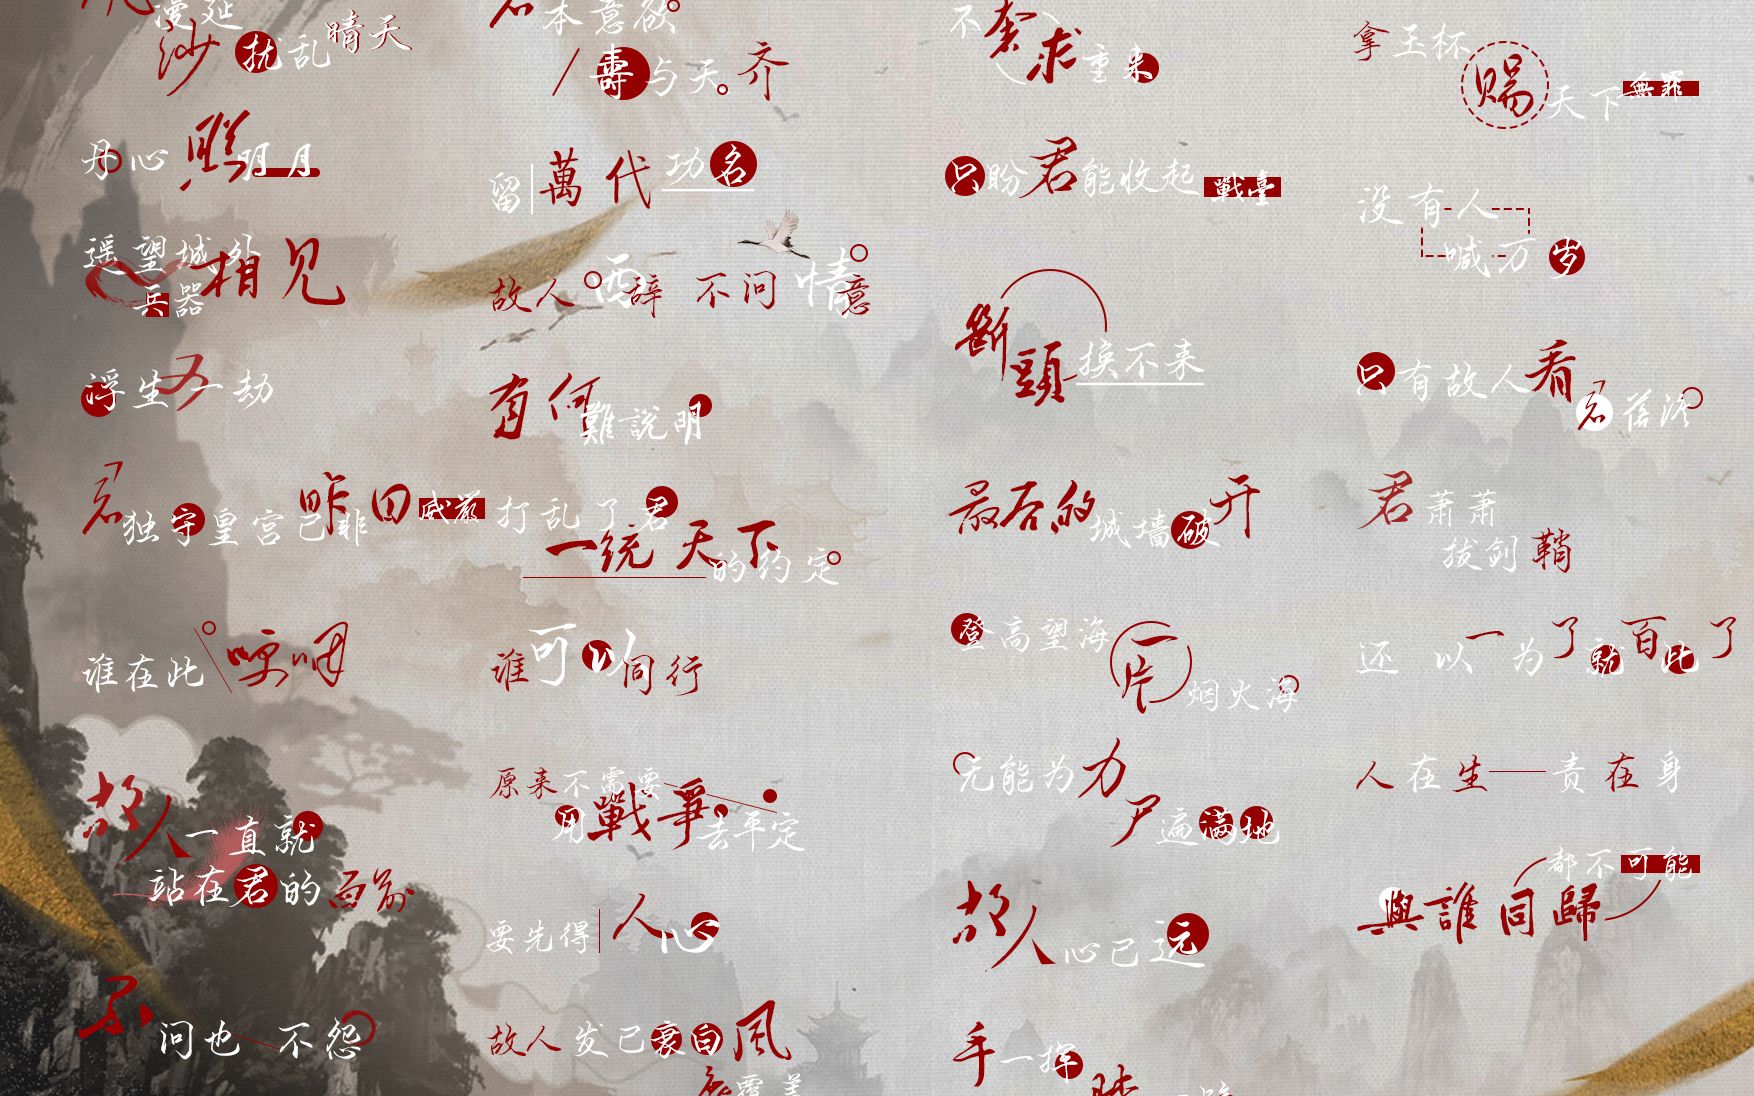 漫延
沙扰乱晴天
丹心照明月
遥望城外
兵器相见
浮生又一劫
君独守皇宫已非昨日威严
谁在此哽咽
故人一直就
站在君的面前
不问也不怨
君本意欲
寿与天齐
留萬代功名
故人西辞不问情意
有何難說明
打乱了君
一统天下的约定
谁可以同行
原来不需要
用戰爭去平定
要先得人心
故人发已衰白风
覆盖
不奢求重来
只盼君能收起戰臺
斷頭换不来
最后的城墙破开
登高望海
一片烟火海
无能为力
尸遍满地
故人心已远
手一挥
拿玉杯
赐天下無罪
没有人
喊万岁
只有故人看
君落泪
君萧萧
拔剑鞘
还以为一了就百此了
人在生——责在身
都不可能
與誰同歸